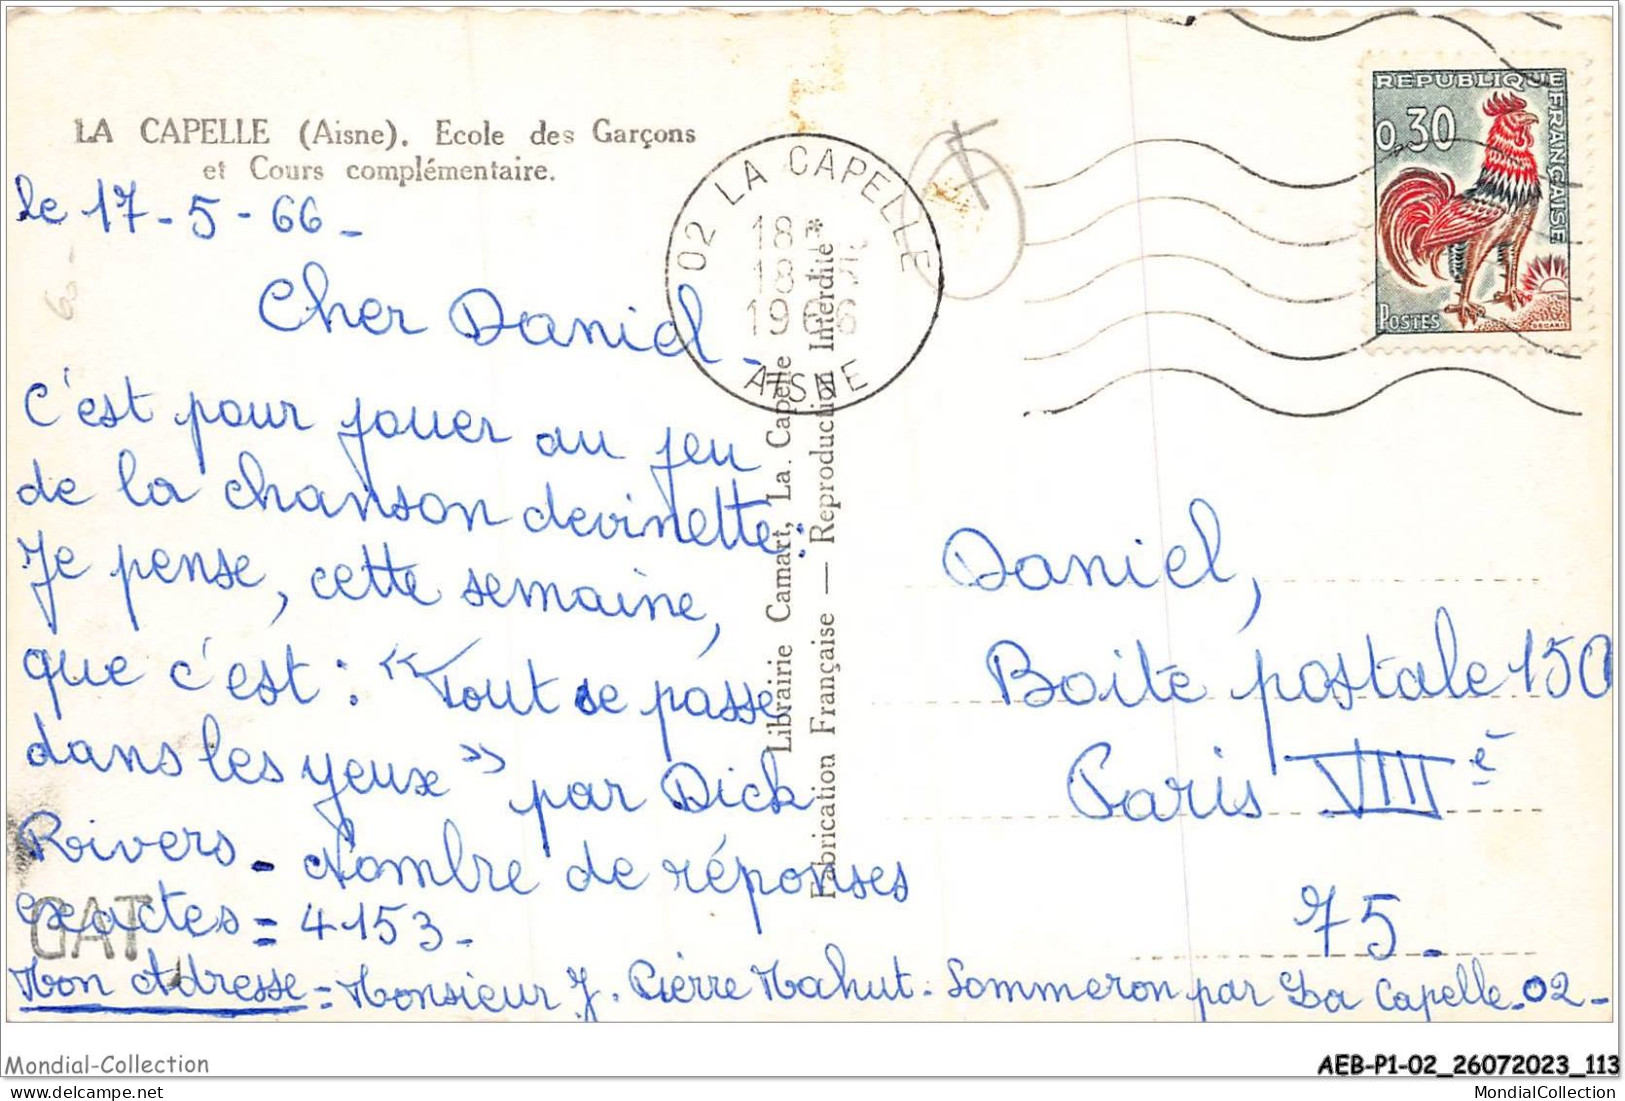 LA CAPELLE (Aisne). Ecole des Garçons
et Cours complémentaire.
le 17-5-66-
Cher Daniel-
C'est pour jouer au jeu
de la chanson devinette:
Je pense, cette semaine,
que c'est: « Tout se passe
dans les yeux » par Dick
Rivers - Nombre de réponses
exactes = 4153-
Mon Adresse = Monsieur J. Pierre Mahut - Sommeron par La Capelle -02-
GAT
02 LA CAPELLE
18 *
18
1966
AISNE
Librairie Camart, La Capelle
Fabrication Française — Reproduction Interdite
REPUBLIQUE
FRANÇAISE
0,30
POSTES
DECARIS
Daniel,
Boite postale 150
Paris VIIIè
75-
Mondial-Collection
AEB-P1-02_26072023_113
MondialCollection